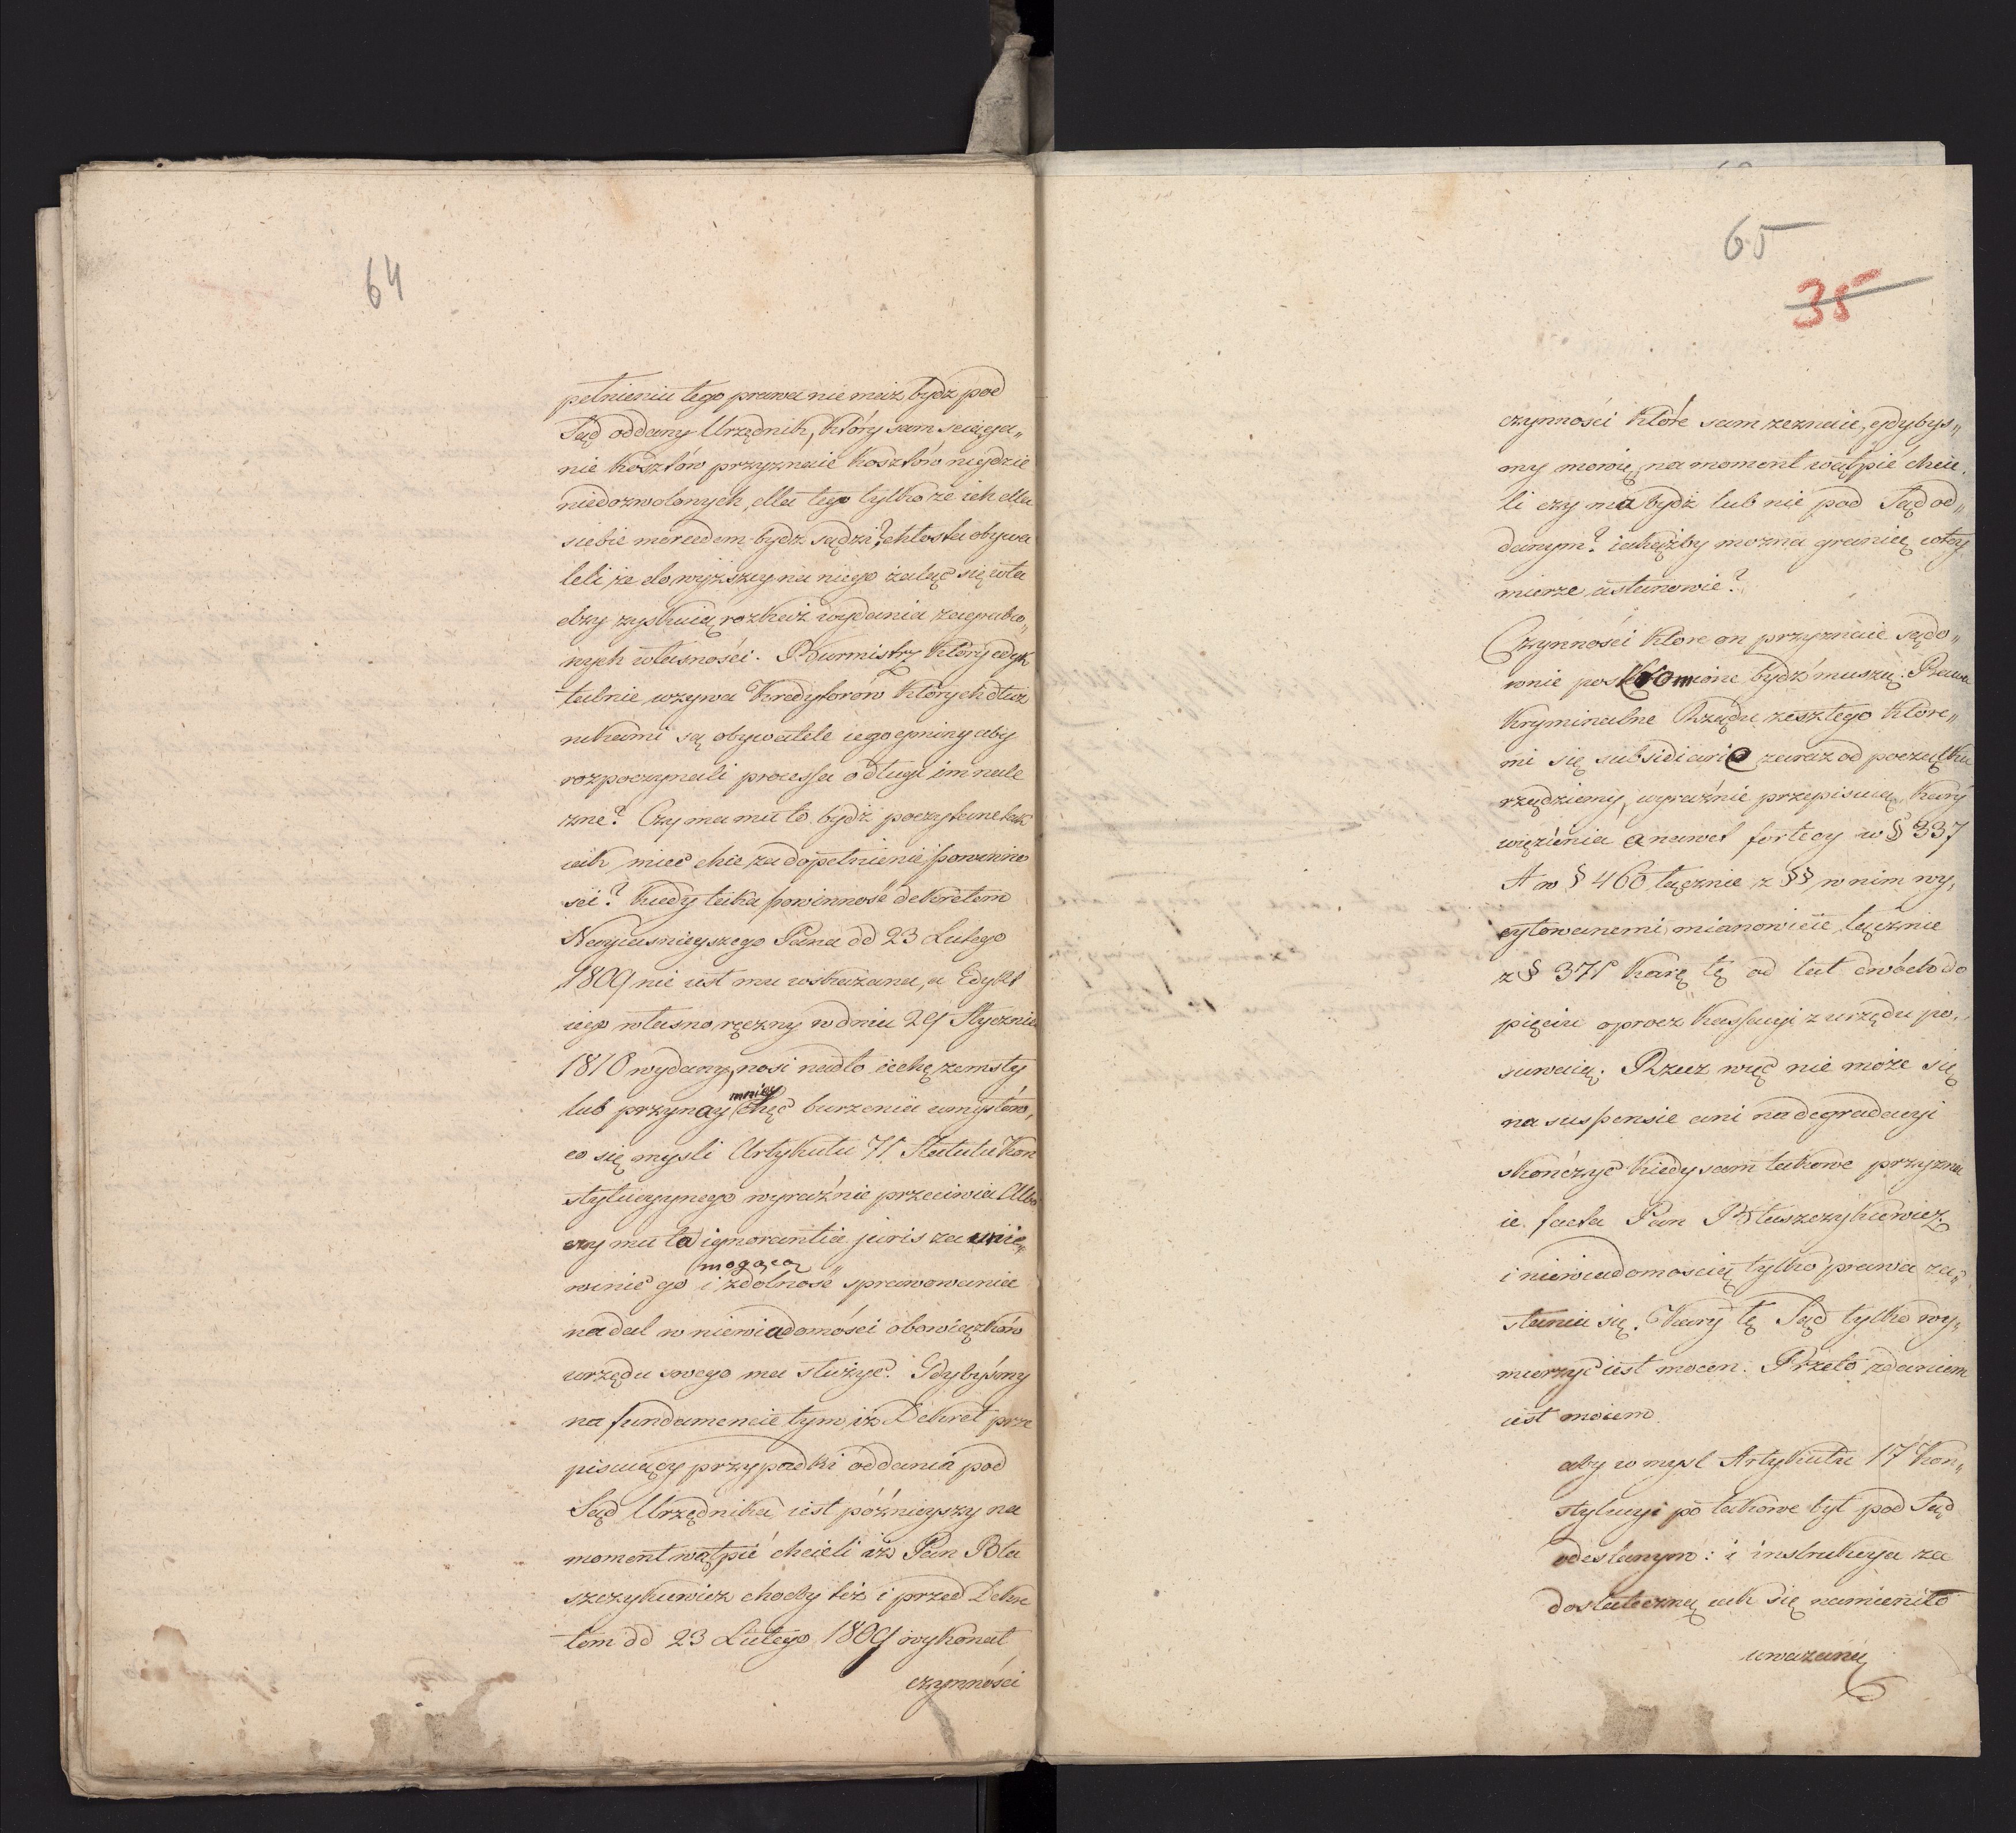 64
pełnieniu tego prawa nie maiż bydź pod
Sąd oddany Urzędnik, który sam sciąga„
nie kosztów przyznaie kosztów nigdzie
niedozwolonych, dla tego tylko że ich dla
siebie mercedem bydź sądzi? chłosta obywa
teli że do wyższey na niego żaląc się wła
dzy zyskuią rozkaz wydania zagrabio„
nych własności. Burmistrz który edyk
talnie wzywa Kredytorów których dłuż
nikami są obywatele iego gminy aby
rozpoczynali processa o długi im nale
żne? Czy ma mu to bydź poczytane tak
iak mieć chce za dopełnienie powinno
ści? kiedy taka powinność dekretem
Nayiasnieyszego Pana dd 23 Lutego
1809 nie iest mu wskazana, a Edykt
iego własno ręczny w dniu 29 Stycznia
1810 wydany, nosi nadto cechę zemsty
lub przynay mniey chęć burzenia umysłów,
co się mysli Artykułu 71 Statutu Kon
stytucyynego wyraźnie przeciwia Albo
czy mu ta ignorantia juris za unie„
winić go i mogącą zdolność sprawowania
nadal w niewiadomości obowiązków
urzędu swego ma służyć. Gdybyśmy
na fundamencie tym, iż Dekret prze
pisuiący przypadki oddania pod
Sąd Urzędnika iest późnieyszy na
moment wątpić chcieli iż Pan Bła
szczykiewicz choćby też i przed Dekre
tem dd 23 Lutego 1809 wykonał
czynności
65
35
czynności które sam zeznaie, gdybys„
my mowię na moment wątpić chcie„
li czy ma bydź lub nie pod Sąd od„
danym? iakążby można granicę w tey
mierze ustanowić?
Czynności ktore on przyznaie sądo„
wnie poskromione bydź muszą. Prawa
Kryminalne Rządu zeszłego które„
mi się subsidiarie zaraz od początku
rządziemy, wyraźnie przepisuią kary
więzienia a nawet fortecy w § 337
A w § 460 łącznie z §§ w nim wy„
cytowanemi mianowicie łącznie
z § 371 karę tę od lat dwóch do
pięciu oprocz kassacyi z urzędu po„
suwaią. Rzecz więc nie może się
na suspensie ani na degradacyi
skończyć kiedy sam takowe przyzna
ie facta Pan Błaszczykiewicz
i niewiadomoscią tylko prawa za„
słania się. Kary tę Sąd tylko wy„
mierzyć iest mocen. Przeto zdaniem
iest moiem
aby w mysl Artykułu 17 Kon„
stytucyi po takowe był pod Sąd
odesłanym: i instrukcya za
dostateczną iak się namieniło
uważaną